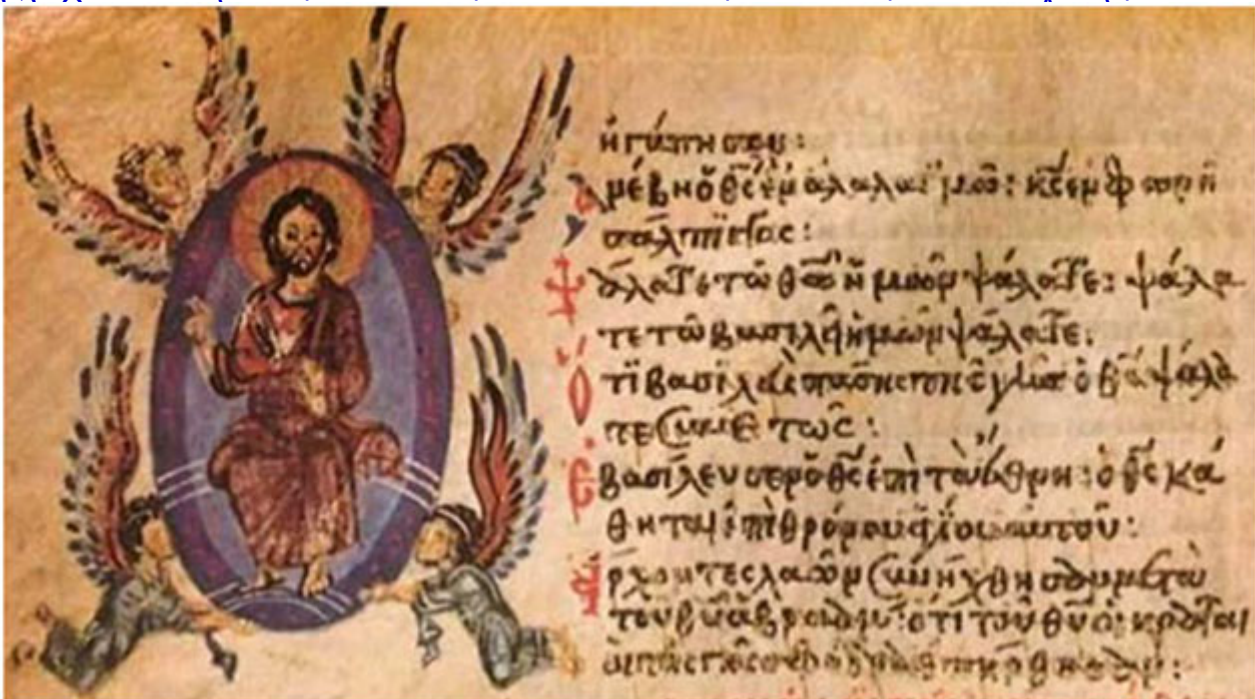 ἠγάπησεν:
ἀνέβη ὁ θ̅ς̅ ἐν ἀλαλαγμῶ: κ̅ς̅ ἐν φωνῆ
σάλπιγγος:
ψάλατε τῶ θ̅ω̅ ἡμῶν ψάλατε: ψάλα
τε τῶ βασιλεῖ ἡμῶν ψάλατε:
ὅτι βασιλεὺς πάσης τῆς γῆς ὁ θ̅ς̅ ψάλα
τε συνετῶς:
ἐβασίλευσεν ὁ θ̅ς̅ ἐπὶ τὰ ἔθνη: ὁ θ̅ς̅ κά
θηται ἐπὶ θρόνου ἁγίου αὐτοῦ:
ἄρχοντες λαῶν συνήχθησαν μετὰ
τοῦ θ̅υ̅ ἀβραάμ: ὅτι τοῦ θ̅υ̅ οἱ κραταιοὶ